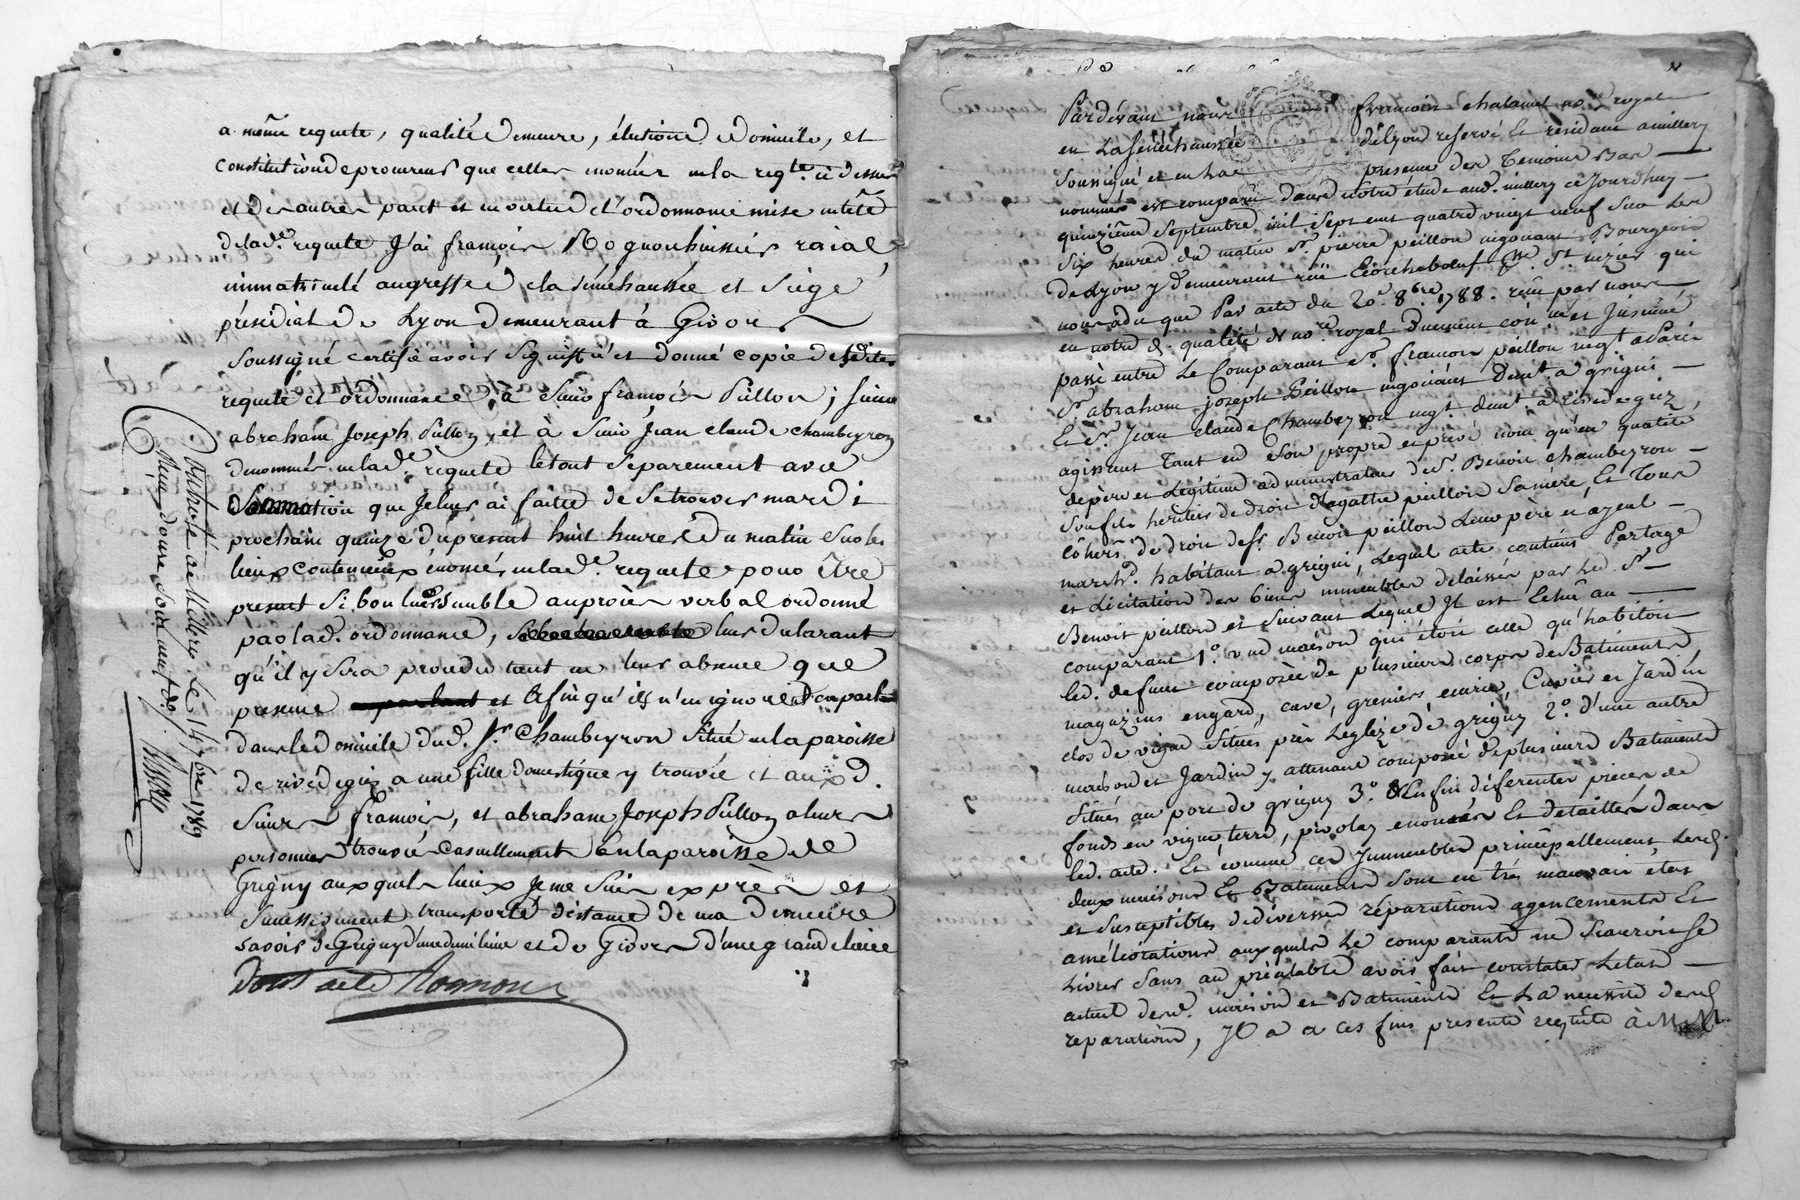 a même requete, qualité demeure, élection de domicile, et
constitution de procureur que celles només en la reqte. ci dessus
et des autres part et en vertu de l'ordonnance mise en tête
de lad. requete J'ai françois Rognon huissier roial
immatriculé au greffe de la sénéchaussée et Siége
présidial de Lyon demeurant à Givors
soussigné certifie avoir signiffié et donné copie desdites
requete et ordonnance, à Sieur françois Peillon, sieur
abraham Joseph Peillon, et à Sieur Jean claude chambeyron
denommés en lad. requete le tout separement avec
Sommation que Je leurs ai faitte de se trouver mardi
prochain quinze du present huit heures du matin sur les
lieux contentieux énoncés en lad. requete pour être
present si bon leurs semble au procès verbal ordonné
par lad. ordonnance, leurs declarant
qu'il y sera procedé tant en leurs absence que
presence et afin qu'ils n'en ignorent en parlant
dans le domicile dud. Sr. Chambeyron situé en la paroisse
de rivedegier a une fille domestique y trouvée et auxd.
Sieurs françois, et abraham Joseph Peillon a leurs
personnes trouvés casuellement en la paroisse de
Grigny auxquels lieux Je me suis exprès et
successivement transporté distance de ma demeure
savoir de Grigny d'une demi lieue et de Givors d'une grande lieue
Dont acte Rognon
Controlé à Millery Le 14 7bre 1789
Reçu douze sols neuf ds.
Pardevant nous françois chalamel nore. royal
en La Sénéchaussée de Lyon reservé Et résidant a millery
soussigné et en la presence des Temoins Bas
nommés est comparu dans notre étude aud. millery ce Jourdhuy
quinzième Septembre mil Sept cent quatre vingt neuf sur les
six heures du matin Sr. pierre peillon negociant Bourgeois
de Lyon y demeurant rüe Ecorcheboeuf psse. St. nizier qui
nous a dit que Par acte du 20e. 8bre. 1788. reçu par nous
en notre d. qualité de nore. royal duement conlé. et Jnsinué
passé entre Le Comparant Sr. françois peillon negt. a Paris
Sr. abraham joseph Peillon negociant demt. a grigni
Et Sr. Jean claude Chambeyron negt. demt. a Rivedegiez,
agissant Tant en Son propre et privé nom qu'en qualité
de père et Légitime administrateur de Sr. Benoit chambeyron
son fils héritier de droit d'Agathe peillon sa mère, Et Tous
cohers. de droit de Sr. Benoit peillon Leur père et ayeul
marchd. habitant a grigni, Lequel acte contient Partage
et Licitation des biens immeubles délaissés par Led. Sr.
Benoit peillon et suivant Lequel Jl est Echû au
comparant 1°. une maison qui étoit celle qu'habitoit
led. defunt composée de plusieurs corps de Batiments
magazins engard, cave, greniers ecurie, Cuvier et Jardin
clos de vigne Situés près Legléze de grigny 2°. d'une autre
maison et Jardin y attenant composé de plusieurs Batiments
Situés au port de grigny 3°. Enfin diferentes pieces de
fonds en vigne terre, énoncées Et detaillés dans
led. acte. Et comme ces Jmmeubles principallement Lesd.
deux maisons Et Batiments Sont en très mauvais état
et Susceptibles de diverses réparations agencements Et
améliorations auxquels Le comparant ne Scauroit se
Livrer Sans au préalable avoir fait constater Letat
actuel desd. maison et Batiments Et La necessité desd.
reparations, Jl a a ces fins presenté requête à